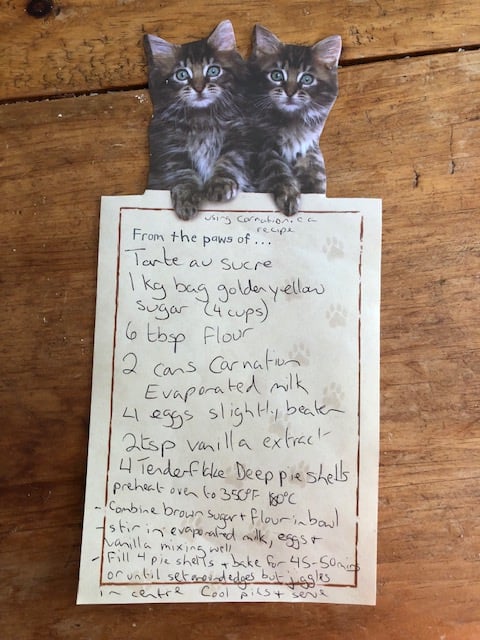 using Carnation.ca
recipe
From the paws of...
Tarte au sucre
1 kg bag golden yellow
sugar (4 cups)
6 tbsp Flour
2 cans Carnation
Evaporated milk
4 eggs slightly beaten
2tsp vanilla extract
4 Tenderflake Deep pie shells
preheat oven to 350°F 180°C
- Combine brown sugar + flour in bowl
- stir in evaporated milk, eggs +
vanilla mixing well
- Fill 4 pie shells + bake for 45-50 mins
or until set around edges but jiggles
in centre Cool pies + serve